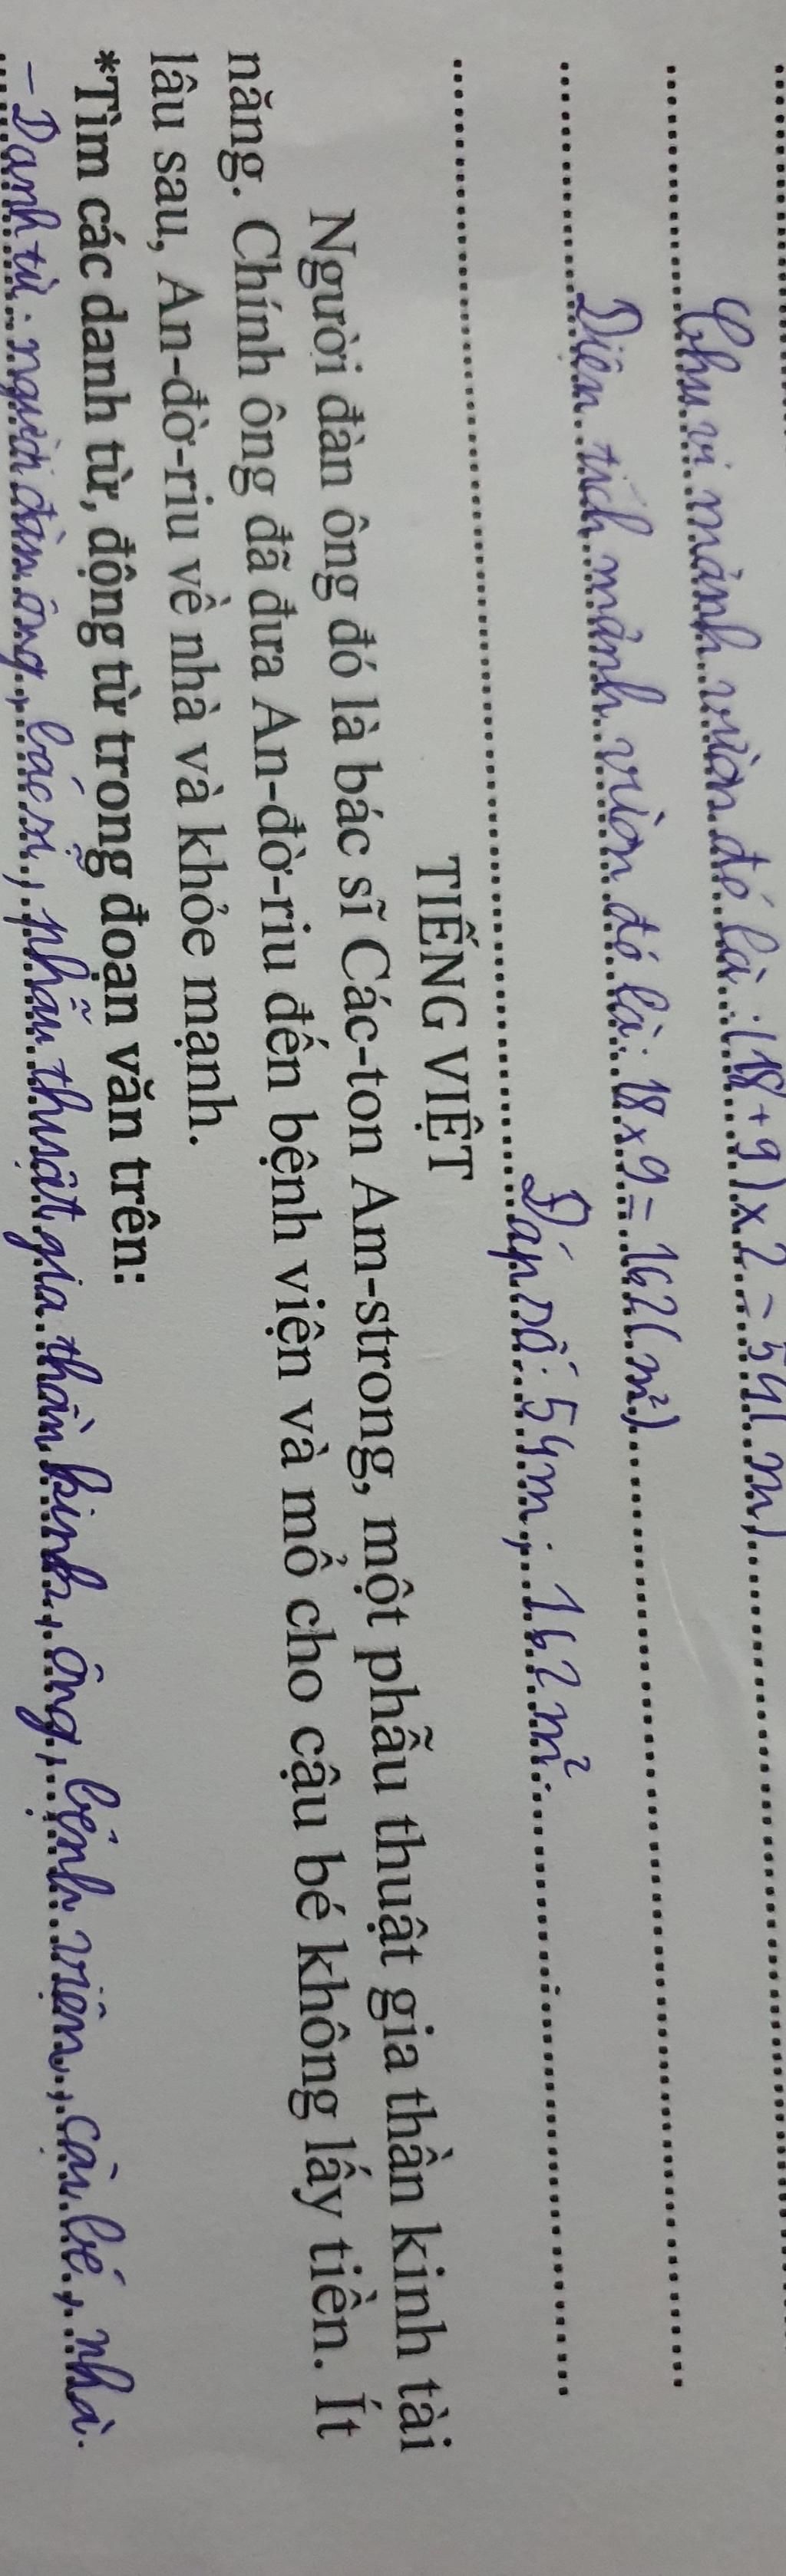 Chu vi mảnh vườn đó là: (18 + 9) x 2 = 54 (m)
Diện tích mảnh vườn đó là: 18 x 9 = 162 (m²)
Đáp số: 54m; 162 m²
TIẾNG VIỆT
Người đàn ông đó là bác sĩ Các-ton Am-strong, một phẫu thuật gia thần kinh tài
năng. Chính ông đã đưa An-đờ-riu đến bệnh viện và mổ cho cậu bé không lấy tiền. Ít
lâu sau, An-đờ-riu về nhà và khỏe mạnh.
*Tìm các danh từ, động từ trong đoạn văn trên:
- Danh từ: người đàn ông, bác sĩ, phẫu thuật gia thần kinh, ông, bệnh viện, cậu bé, nhà.